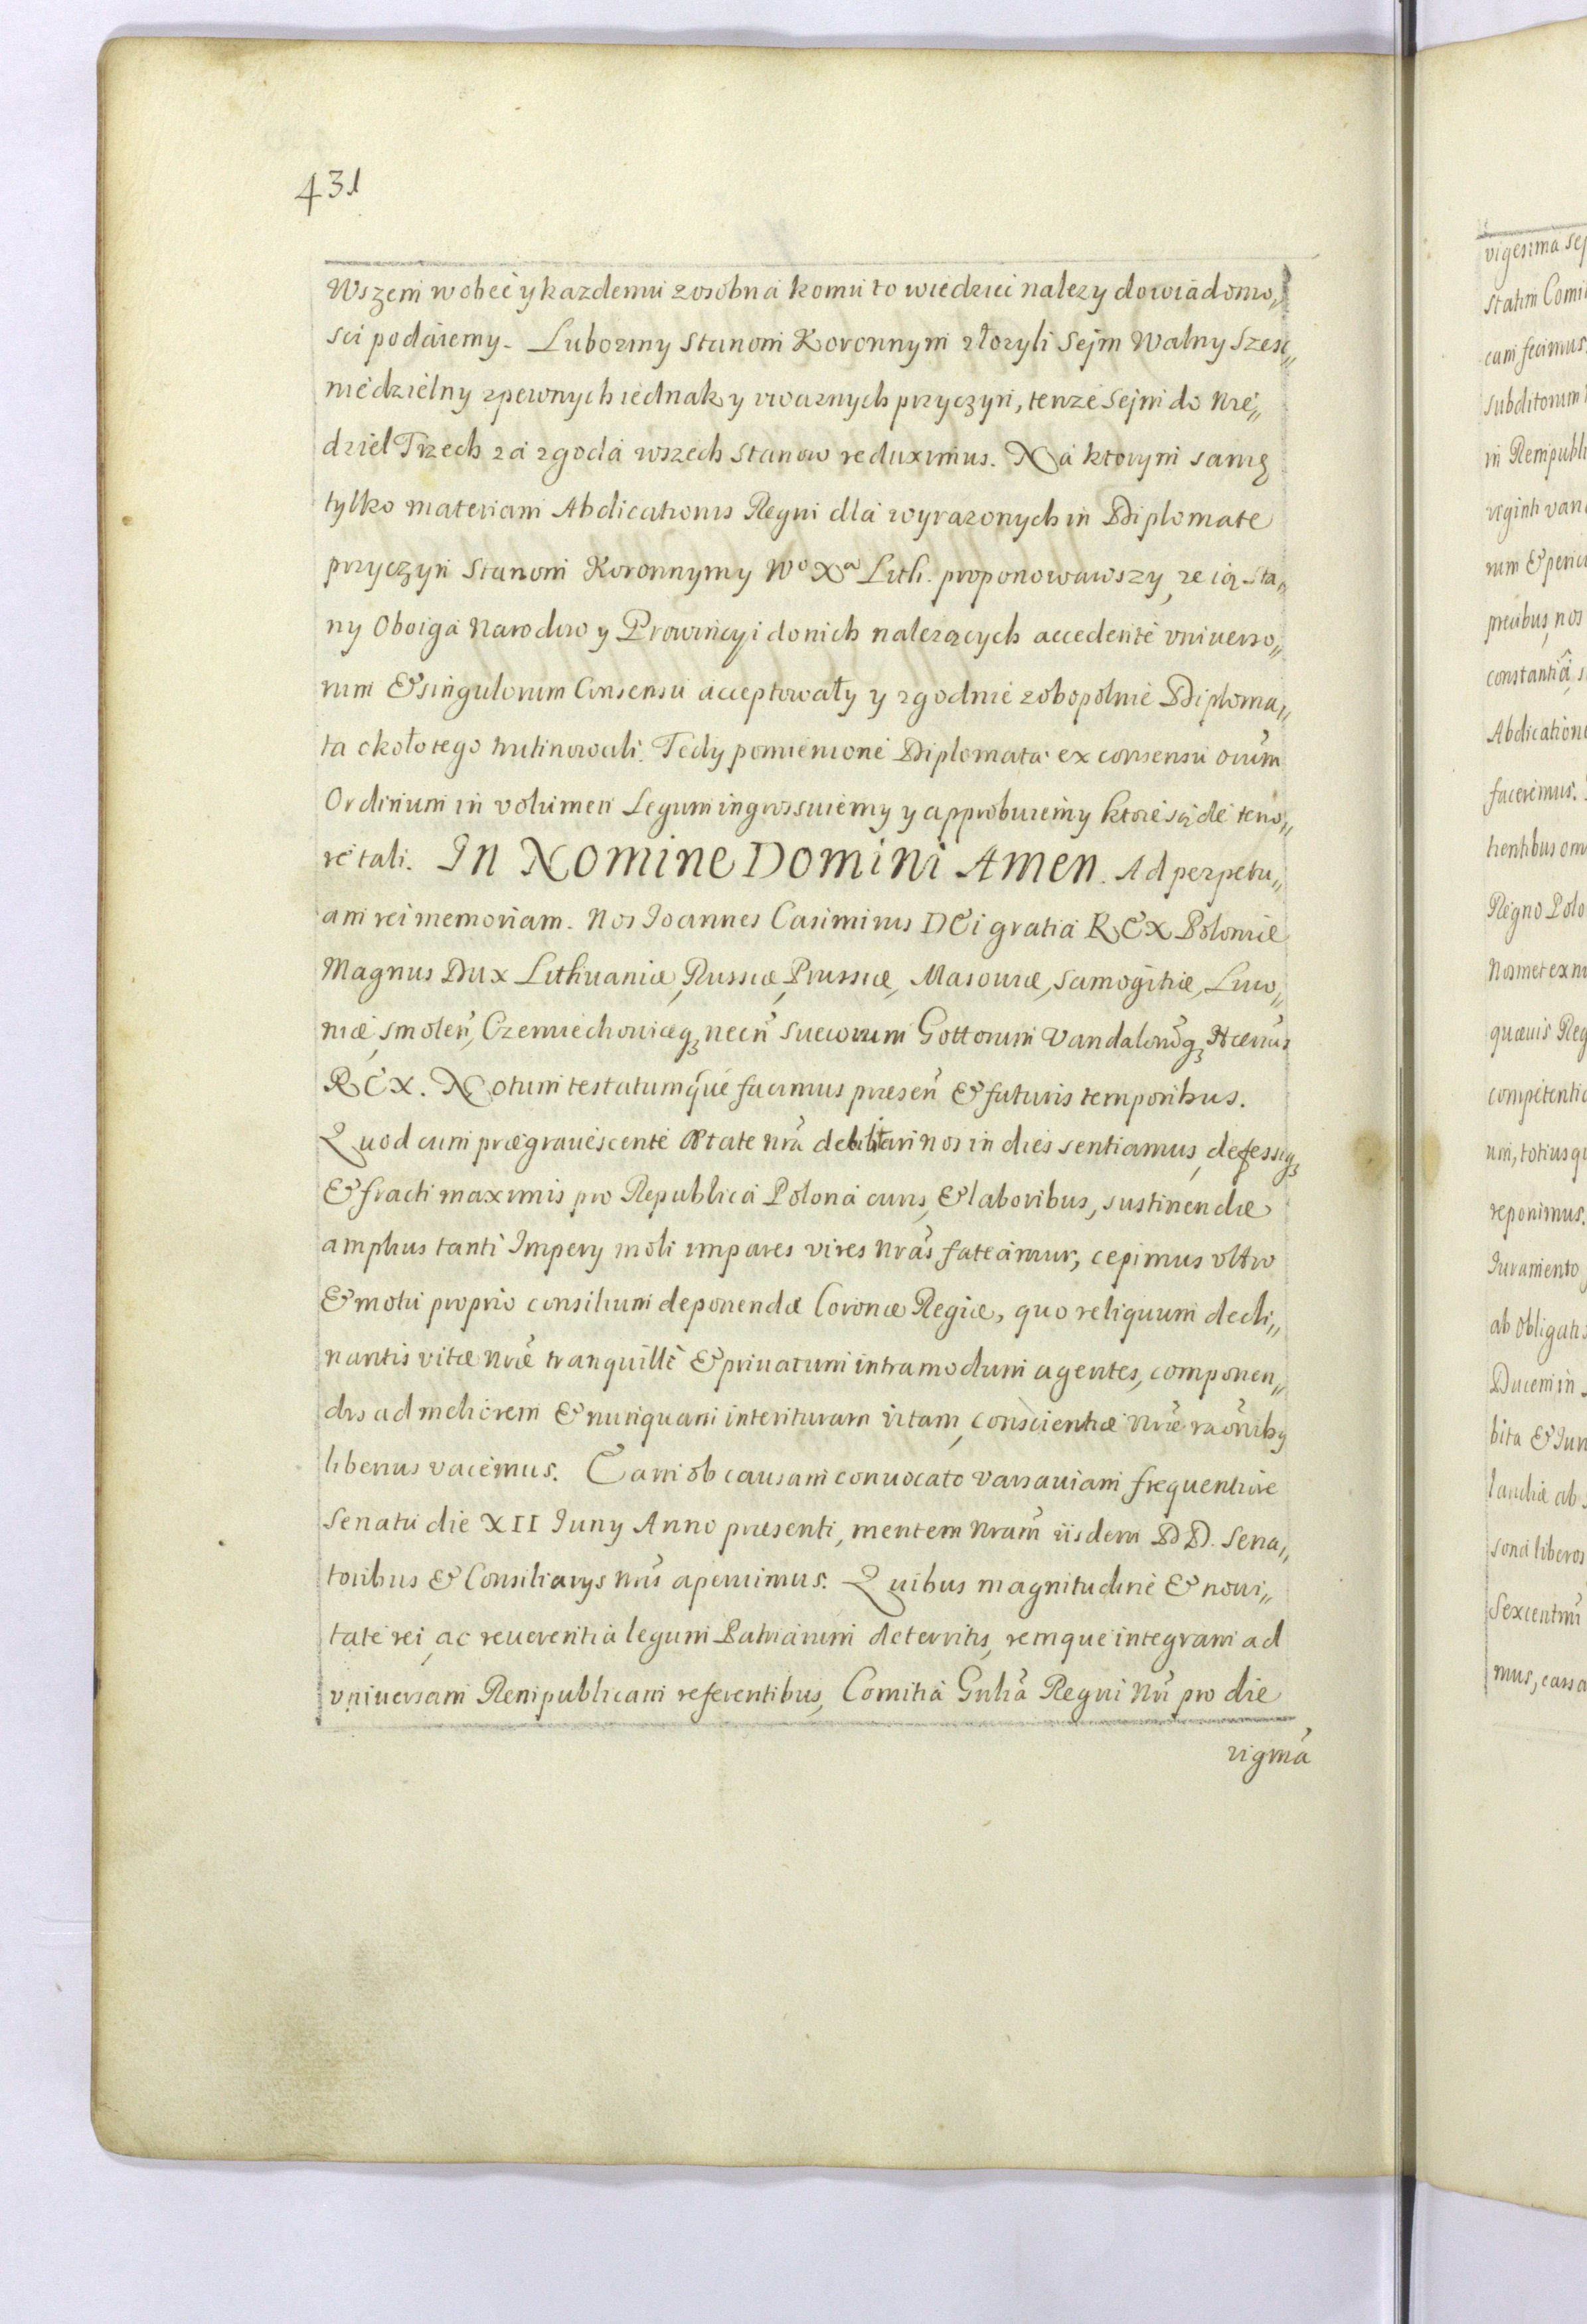 431
Wszem wobec y kazdemu zosobna komu to wiedziec nalezy do wiadomo„
sci podaiemy. Lubozmy Stanom Koronnym złozyli Sejm Walny Szesc„
niedzielny zpewnych iednak y uwaznych przyczyn, tenze Sejm do Nie„
dziel Trzech za zgodą wszech Stanow reduximus. Na ktorym samę
tylko materiam Abdicationis Regni dla wyrazonych in Diplomate
przyczyn Stanom Koronnym y Wº Xª Lith. proponowawszy, ze ią Sta„
ny Oboiga Narodow y Prowincyi do nich nalezących accedente universo„
rum & singulorum Consensu acceptowały y zgodnie zobopolnie Diploma„
ta około tego trutinowali. Tedy pomienione Diplomata ex consensu oium̃
Ordinium in volumen Legum ingrossuiemy y approbuiemy ktore są de teno„
re tali. In Nomine Domini Amen. Ad perpetu„
am rei memoriam. Nos Joannes Casimirus DEi gratia REX Poloniæ
Magnus Dux Lithuaniæ, Russiæ, Prussiæ, Masouiæ, Samogitiæ, Liuo„
niæ, Smoleñ, Czerniechouiæq; necñ Sueuorum Gottorum Vandalorũq; Hærius
REX. Notum testatumque facimus preseñ & futuris temporibus.
Quod cum prægrauescente Ætate nrã debilitari nos in dies sentiamus, defessiq;
& fracti maximis pro Republica Polona curis, & laboribus, sustinendæ
amplius tanti Impery moli impares vires nrãs fateamur, cepimus vltro
& motu proprio consilium deponendæ Coronæ Regiæ, quo reliquum decli„
nantis vitæ nræ̃ tranquillè & priuatum intra modum agentes, componen„
dis ad meliorem & nunquam interituram vitam, conscientiæ nræ̃ raõniby
liberius vacemus. Eam ob causam conuocato Varsauiam frequentiore
Senatu die XII Juny Anno presenti, mentem nram̃ iisdem DD. Sena„
toribus & Consiliarys nrĩs aperuimus. Quibus magnitudine & noui„
tate rei, ac reuerentia legum Patriarum deterritis, remque integram ad
vniuersam Rempublicam referentibus, Comitia Gnlia Regni Nrĩ pro die
vigmã
vigesima sep
statim Comi
cam fecimus
subditorum
in Rempubli
viginti van
rum & peric
precibus, nos
constantiâ, s
Abdication
faceremus.
trentibus om
Regno Polo
Nosmet ex n
quæuis Reg
competentia
um, totiusq
reponimus.
Juramento
ab obligatis
Ducem in
bita & Jun
landiæ ab
sona liberos
Sexcentmũ
mus, cassa